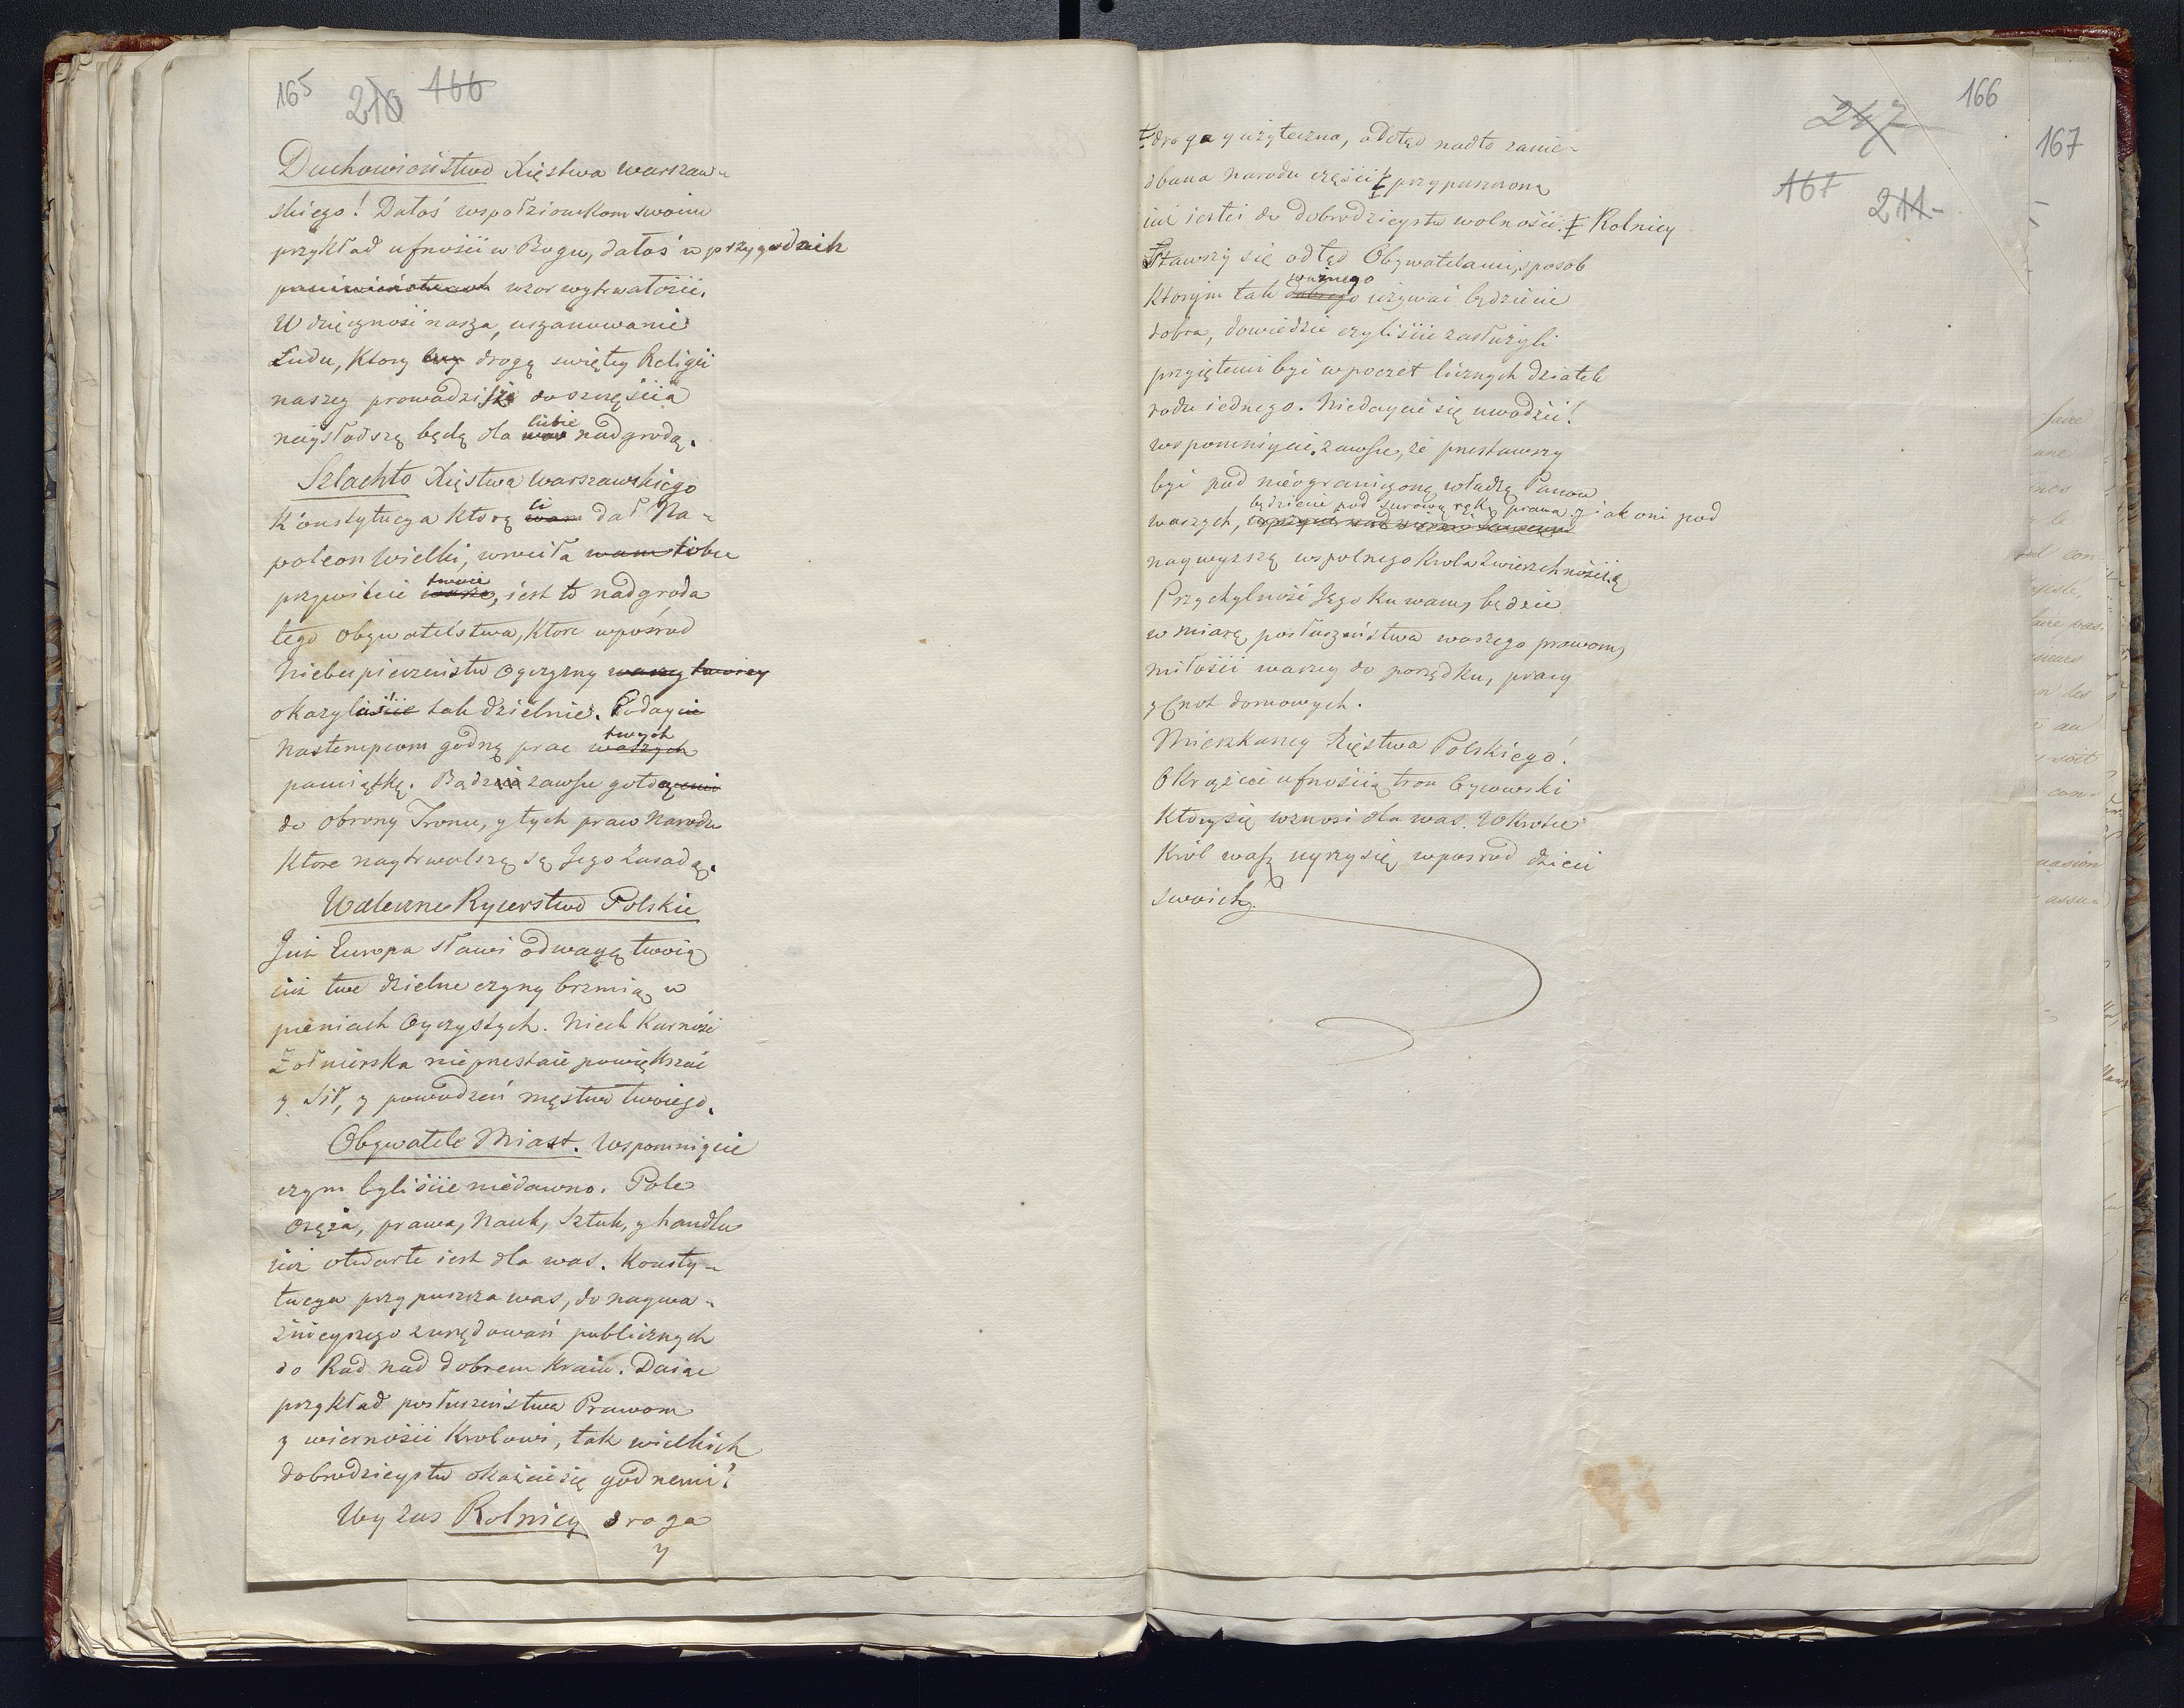 165 210 166
Duchowieństwo Xięstwa Warszaw-
skiego! Dałoś wspołziomkom swoim
przykład ufności w Bogu, dałoś w przygodach
wzor wytrwałości.
Wdzięczność nasza, uszanowanie
Ludu, ktory drogą swiętey Religii
naszey prowadzisz do szczęścia
naysłodszą będą dla
ciebie
nadgrodą.
Szlachto Xięstwa Warszawskiego
Konstytucya ktorą
ci
wam dał Na-
poleon Wielki, wrociła wam tobie
przywileie
twoie
wasze, iest to nadgroda
tego obywatelstwa, ktore wpośrod
Niebezpieczeństw Oyczyzny waszey twoiey
okazyliście tak dzielnie. Podaycie
Nastempcom godną prac
twych
waszych
pamiątkę. Bądź zawsze
do obrony Tronu, y tych praw Narodu
Ktore naytrwalszą są Jego Zasadą.
Waleczne Rycerstwo Polskie
Już Europa sławi odwagę twoią
iuż twe dzielne czyny brzmią w
pieniach Oyczystych. Niech Karność
Żołnierska nieprzestaie powiększać
y Sił, y powodzeń męstwa twoiego.
Obywatele Miast. Wspomniycie
czym byliście niedawno. Pole
Oręża, prawa, Nauk, Sztuk, y handlu
iuż otwarte iest dla was. Konsty-
tucya przypuszcza was, do naywa-
żnieyszego zurzędowań publicznych
do Rad nad dobrem Kraiu. Daiąc
przykład posłuszeństwa Prawom
y wierności Krolowi, tak wielkich
dobrodzieystw okażcie się godnemi!
Wy zas Rolnicy droga
y
166
247
167 211-
droga y użyteczna, odtąd nadto zanie-
dbana Narodu części przypuszczoną
iuż iesteś do dobrodzieystw wolności. Rolnicy
Stawszy się odtąd Obywatelami, sposob
Ktorym tak
ważnego
dobrego używać będziecie
dobra, dowiedzie czyliście zasłużyli
przyiętemi być w poczet licznych dziatek
rodu iednego. Niedaycie się uwodzić!
wspomniycie, zawsze, że przestawszy
być pod nieograniczoną władzą Panow
waszych,
będziecie pod surową ręką prawa, y iak oni pod
naywyższą wspolnego Krola Zwierzchnością
Przychylność Jego ku wam, będzie
w miarę posłuszeństwa waszego prawom,
miłości waszey do porządku, pracy
y Cnot domowych.
Mieszkancy Xięstwa Polskiego!
Okrążcie ufnością tron Oycowski
Ktory się wznosi dla was. Wkrotce
Król wasz uyrzy się wposrod dzieci
swoich.
167